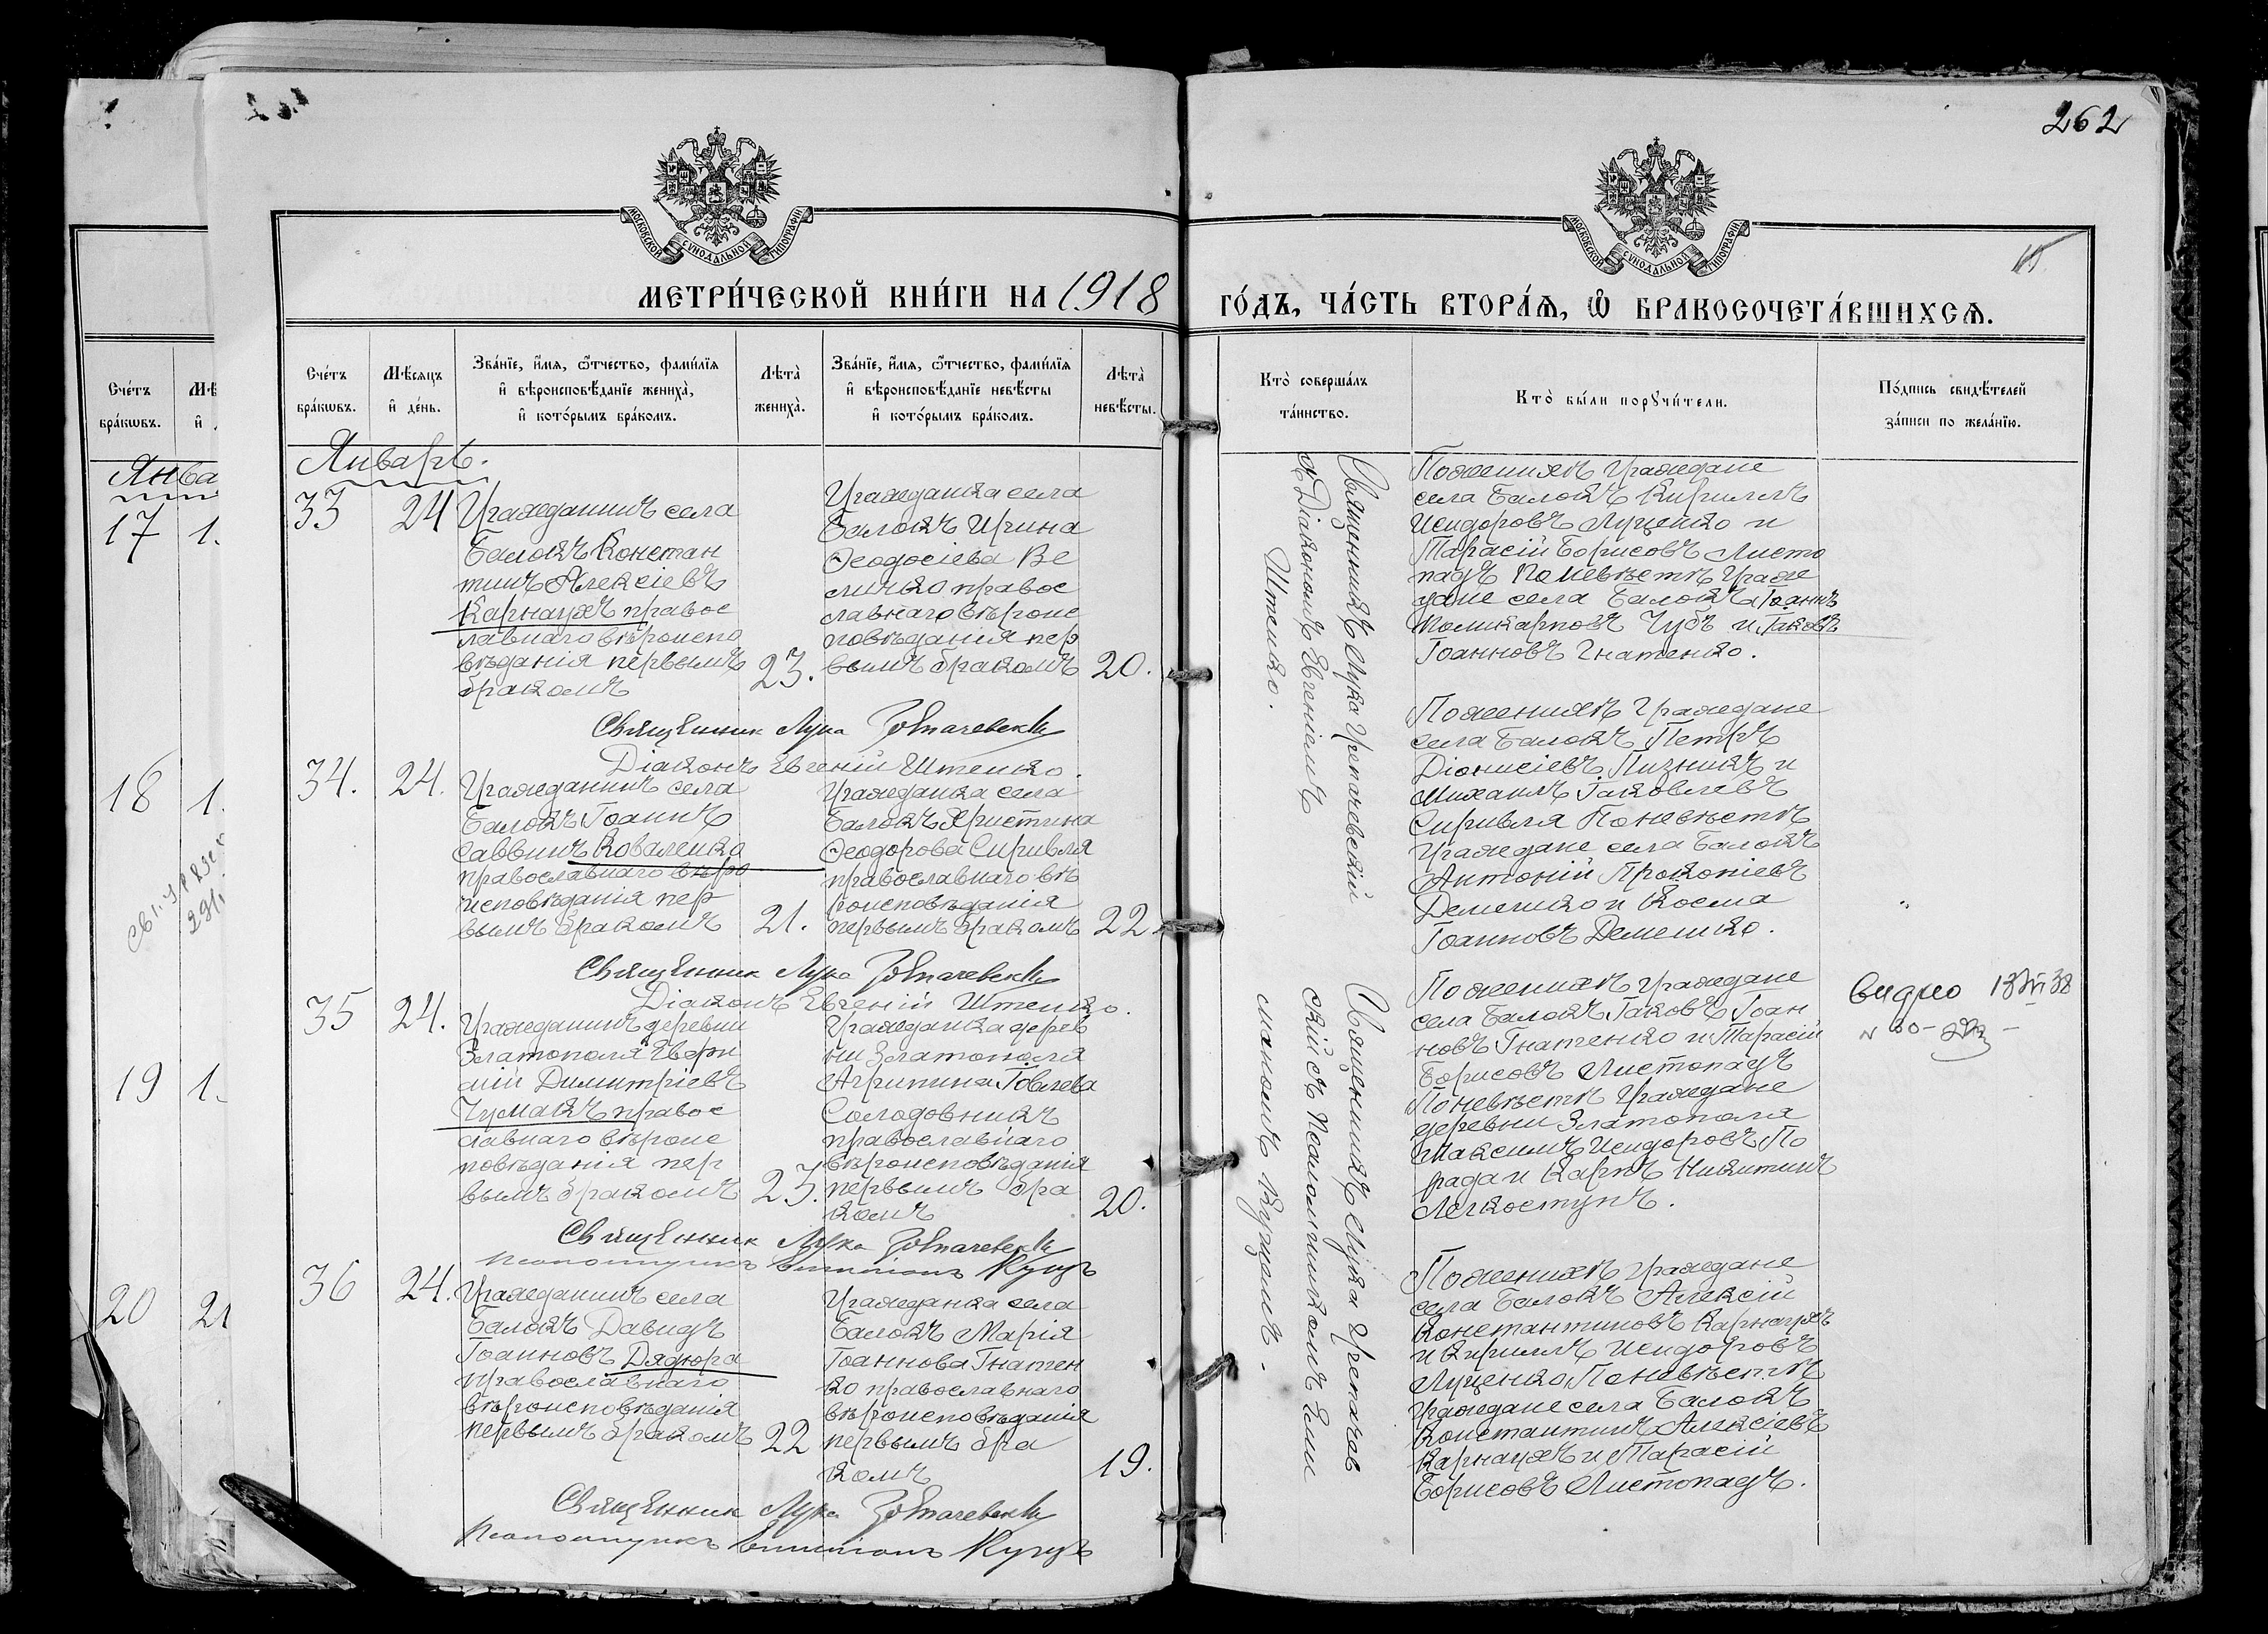 262
МОСКОВСКОЙ СѴНОДАЛЬНОЙ ТИПОГРАФІИ
МОСКОВСКОЙ СѴНОДАЛЬНОЙ ТИПОГРАФІИ
МЕТРИ́ЧЕСКОЙ КНИ́ГИ НА 1918
ГО́ДЪ, ЧА́СТЬ ВТОРА́Ѧ, Ѿ БРАКОСОЧЕТА́ВШИХСѦ.
Сче́тъ
бра́кѡвъ.
Янва
17 1.
18 1.
19 1.
20 21
Сче́тъ
бра́кѡвъ.
Мѣ́сяцъ
и҆ де́нь.
Зва́нїе, и҆́мя, ѻ҆́тчество, фами́лїя
и҆ вѣроисповѣ́данїе жениха̀,
и҆ кото́рымъ бра́комъ.
Лѣта̀
жениха̀.
Зва́нїе, и҆́мя, ѻ҆́тчество, фами́лїя
и҆ вѣроисповѣ́данїе невѣ́сты
и҆ кото́рымъ бра́комъ.
Лѣта̀
невѣ́сты.
Кто̀ соверша́лъ
та́инство.
Кто̀ бы́ли порꙋчи́тели.
По́дпись свидѣ́телей
за́писи по жела́нїю.
Январь.
33 24
Гражданинъ села
Балокъ Констан
тинъ Алексіевъ
Карнаухъ правос
лавнаго вѣроиспо
вѣданія первымъ
бракомъ
23.
Гражданка села
Балокъ Ирина
Ѳеодосіева Ве
личко правос
лавнаго вѣроис
повѣданія пер
вымъ бракомъ
20.
Священник Лука
Діаконъ Евгеній Штепко.
Поженихѣ Граждане
села Балокъ Кириллъ
Исидоровъ Луценко и
Тарасій Борисовъ Листо
падъ Поневѣстѣ Граж
дане села Балокъ Іоаннъ
Поликарповъ Чубъ и Іаковъ
Іоанновъ Гнатенко.
34. 24.
Гражданинъ села
Балокъ Іоаннъ
Саввинъ Коваленко
православнаго вѣро
исповѣданія пер
вымъ бракомъ
21.
Гражданка села
Балокъ Христина
Ѳеодорова Сиривля
православнаго вѣ
роисповѣданія
первымъ бракомъ
22.
Священник Лука
Діаконъ Евгеній Штепко.
Поженихѣ Граждане
села Балокъ Петръ
Діонисіевъ Пизникъ и
Михаилъ Іаковлевъ
Сиривля Поневѣстѣ
Граждане села Балокъ
Антоній Прокопіевъ
Демешко и Косма
Іоанновъ Демешко.
Священникъ Лука
съ Діакономъ Евгеніемъ
Штепко.
35 24.
Гражданинъ деревни
Златополя
Димитріевъ
Чумакъ правос
лавнаго вѣроис
повѣданія пер
вымъ бракомъ
23.
Гражданка дерев
ни Златополя
Агрипина Іовлева
Солодовникъ
православнаго
вѣроисповѣданія
первымъ бра
комъ
20.
Священник Лука
Псаломщикъ Куцъ
Поженихѣ Граждане
села Балокъ Іаковъ Іоан
новъ Гнатенко и Тарасій
Борисовъ Листопадъ
Поневѣстѣ Граждане
деревни Златополя
Максимъ Исидоровъ По
рада и Карпъ Никитинъ
Легкоступъ.
видно 13 VI 38
36 24.
Гражданинъ села
Балокъ Давидъ
Іоанновъ Дядюра
православнаго
вѣроисповѣданія
первымъ бракомъ
22
Гражданка села
Балокъ Марія
Іоаннова Гнатен
ко православнаго
вѣроисповѣданія
первымъ бра
комъ
19.
Священник Лука
Псаломщикъ Куцъ
Поженихѣ Граждане
села Балокъ Алексій
Константиновъ Карнаухъ
и Кириллъ Исидоровъ
Луценко, Поневѣстѣ
Граждане села Балокъ
Константинъ Алексіевъ
Карнаухъ и Тарасій
Борисовъ Листопадъ.
Священникъ Лука
скій съ Псаломщикомъ